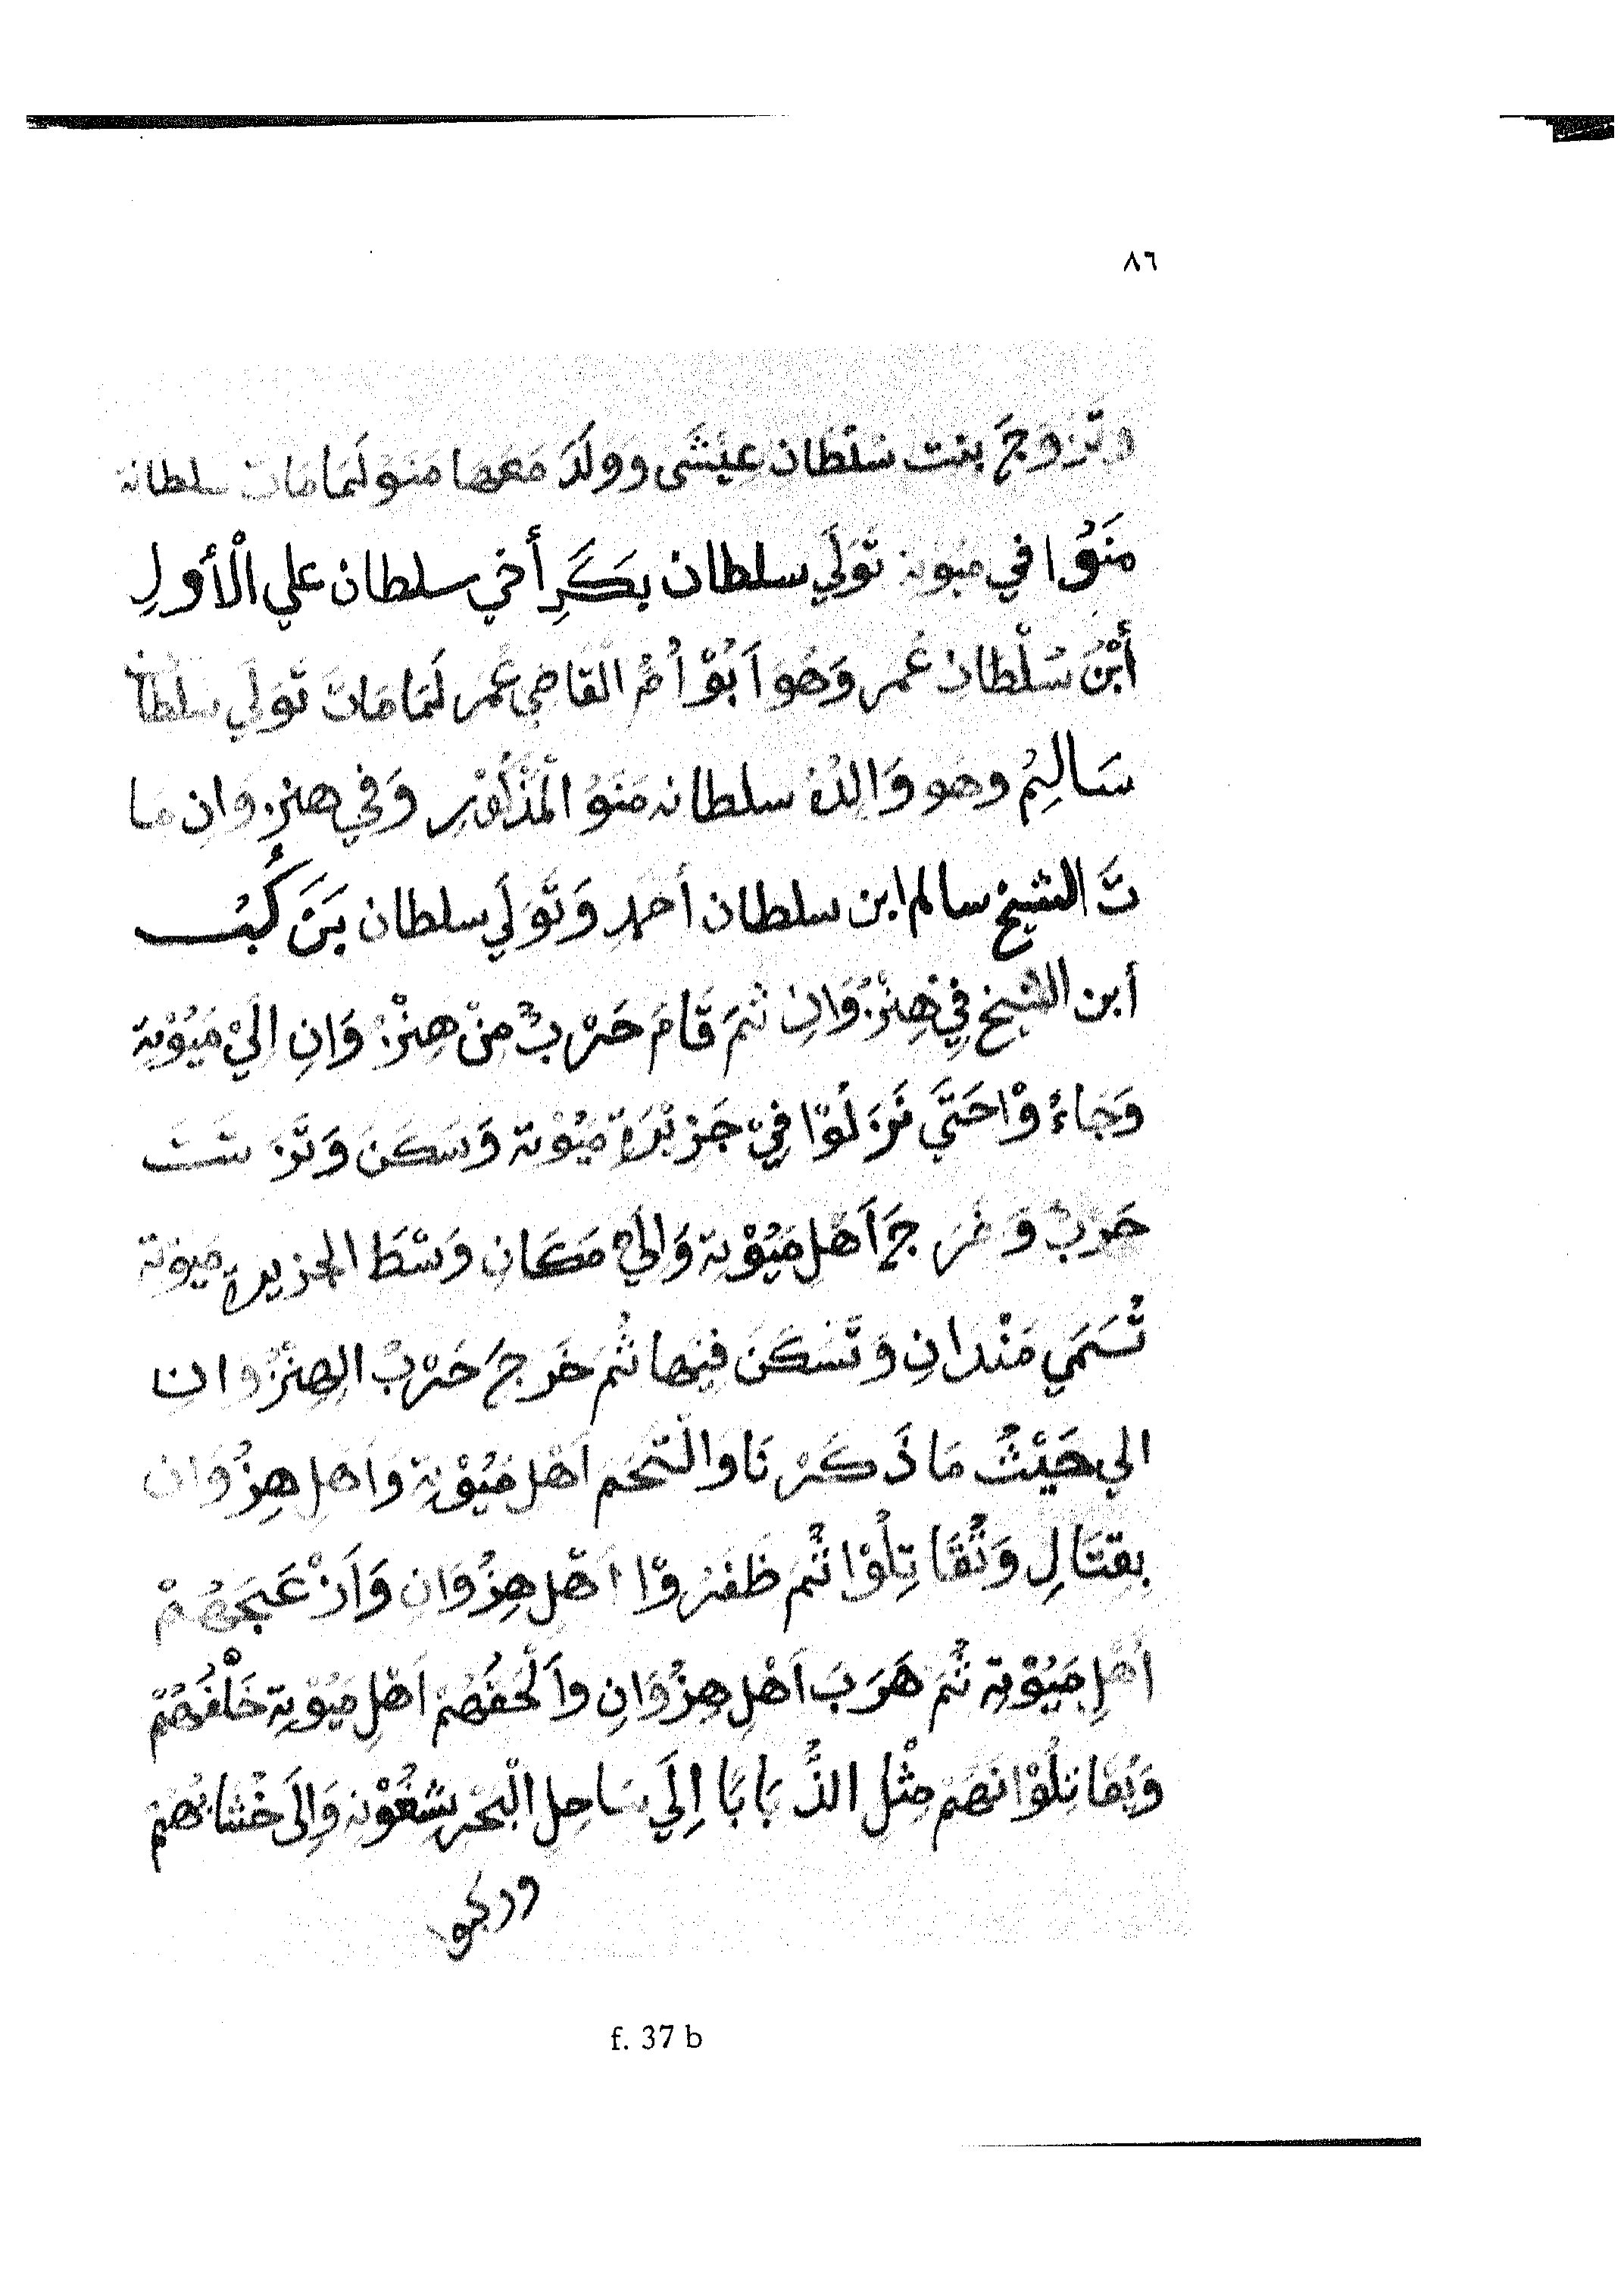 ٨٦
وتَزَوَجَ بنت سُلْطَان عِيْشَى وَوَلَدَ مَعَهَا مَنَوْ لَمَا مَاتَ سلطانة
مَنَوُا في مَيُوتة تَوَلَي سلطان بَكَرِ أخي سلطان علي الْأَولِ
أبْنُ سُلْطان عُمر وَهُوَ اَبُوْ اُمُّ الْقَاضِي عُمَر لَمَا مَاتَ تَوَلَي سلْطَانْ
سَالِمُ وهُو وَالِدُهُ سلطانه مَنَوُ الْمَذْكُوْرِ وَفي هنزوَانِ مَا
تَ الشيخ سالم ابن سلطان أحمد وَتَوَلَي سلطان بَنَ كُبُ
أبن الشيخ فِي هِنْزُوَانِ ثُمَ قَامَ حَرْبُ مِنْ هِنْزُ وَانِ الَيْ مَيُوْتِة
وَجَاءُوْا حَتَّي نَزَلُوْا فِيْ جَزِيْرَة مَيُوْتة وَسَكَنَ وَتَرَتبَتَ
حَرْبُ وَخَرَجَ اَهْل مَيُوْتة وَالَيْ مَكَانِ وَسْطَ الجزيرة مَيوتة
تُسَمَي مَنْدَانِ وَتَسَكَنَ فيها ثُمَ خَرجَ حَرْبُ الهِنْزُوانِ
الي حَيْثُ مَا ذَكَرْ نَا وَالْتَحَمَ اَهْل مَيُوْتة وَاَهلِ هِزُوَان
بِقِتَالِ وَتُقَاتِلُوْا ثُمَ ظَفَرُوْا اَهْل هِزُوَانِ وَاَزْعَجَهُمْ
اَهْلِ مَيُوْتة ثُمَ هَرَبَ اَهْلِ هِزُوَانِ واَلْحَقُهُمْ اَهْلِ مَيُوْتِة خَلْفُهُمْ
وَيُقَاتِلُوْانَهُمْ مِثْلِ الذُبَابَا اِلَي سَاحِلِ الْبَحْر وَاِلَى
f. 37 b